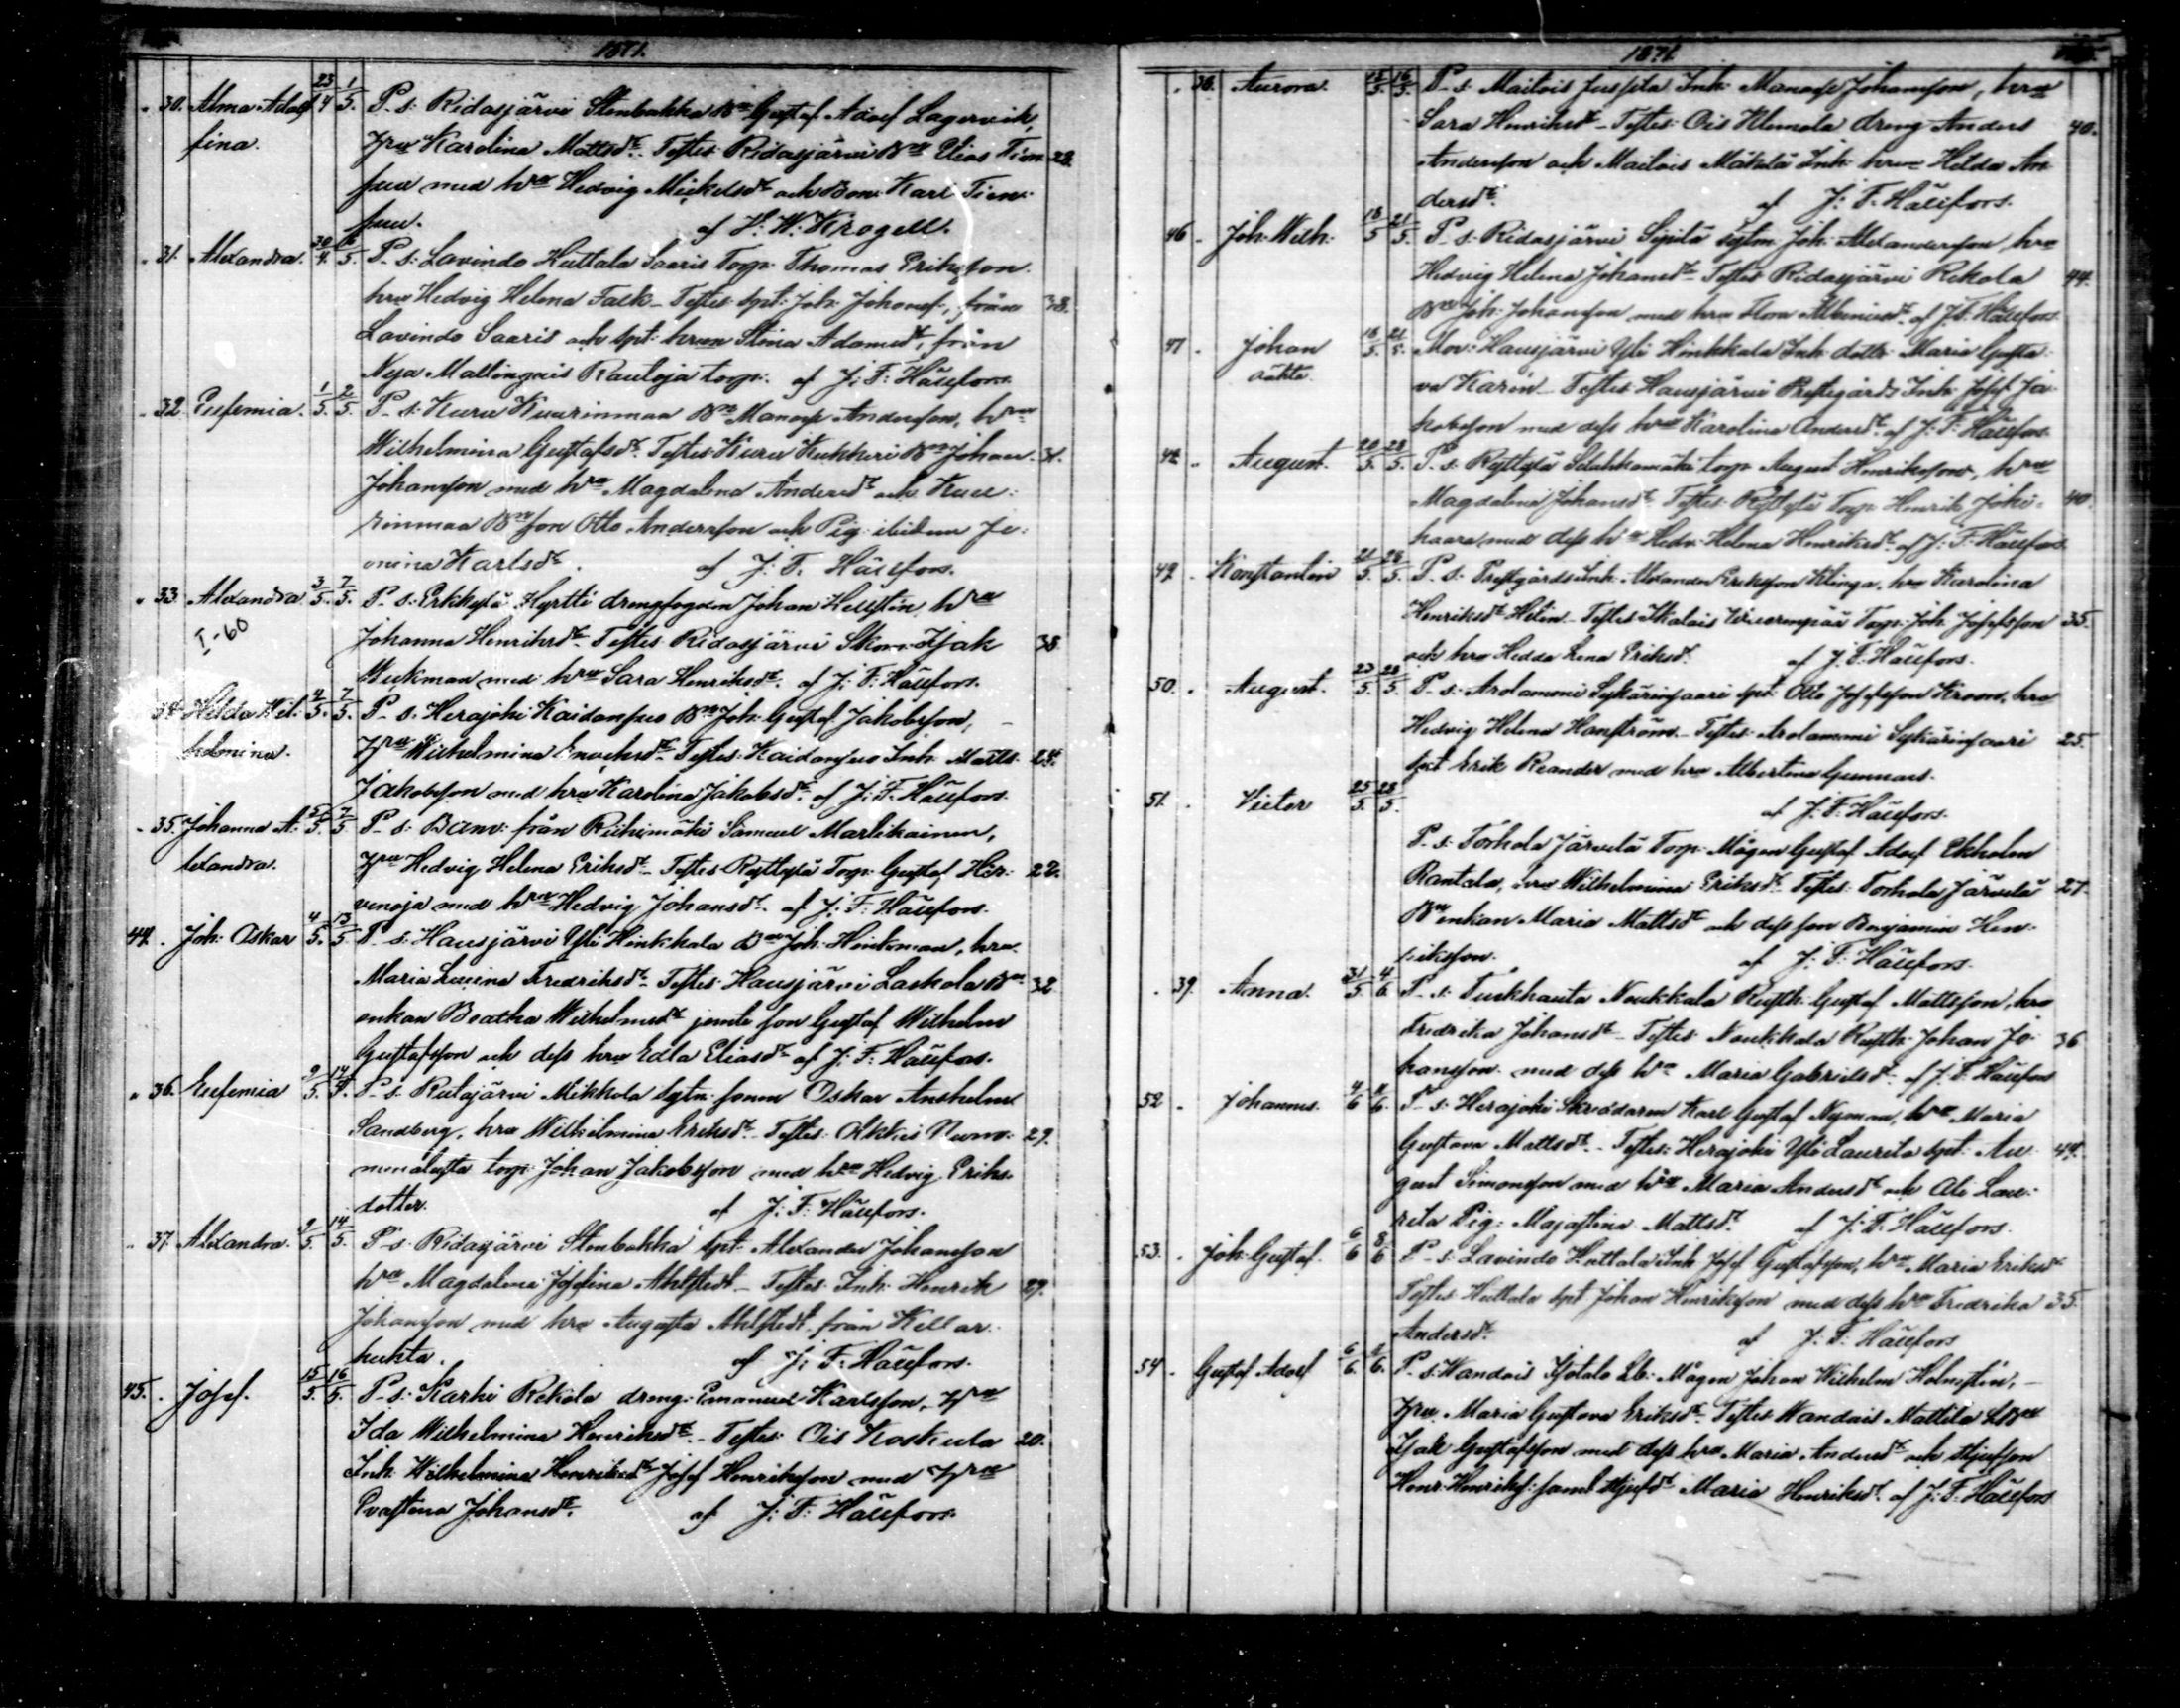 1871.
" 30. Alma Adol 23/4 1/5. P-s: Ridasjärvi Stenbakka Bn Gustaf Adolf Lagervik,
fina. hru Karolina Mattsdr. Testes Ridasjärvi Bn Elias Tion 28.
suu med hru Hedvig Mickelsdr och Bon. Karl Tion-
suu. af H. W. Krogell.
" 31. Alexandra. 30/4. 6/5. P-s: Lavindo Huttala Saaris Torp. Thomas Eriksson
hru Hedvig Helena Falk - Testes Spt: Joh: Johansf, från 38.
Lavindo Saaris och spt: hrun Stina Adamsdr, från
Nya Mallinkais Rautoja torp. af J: F: Hällfors.
" 32 Eufemia. 1/5. 2/5. P-s: Kuru Kuurinmaa Bn Manasse Andersson, hru
Wilhelmina Gustafsdr. Testes Kuru Kukkeri Bn Johan 31.
Johansson med hru Magdalena Andersdr och Kuu-
rinmaa Bn son Otto Andersson och Pig. ibidem Je-
onina Karlsdr. af J: F: Hällfors.
" 33. Alexandra 3/5. 7/5. P-s: Erkkylä Hyrtti drengfogden Johan Hellstén, hru
I-60 Johanna Henriksdr. Testes Ridasjärvi Skom. Isak 38
Wukman med hru Sara Henriksdr. af J: F: Hällfors.
34. Hilda Wil- 4/5. 7/5. P-s. Herajoki Kaidansuo Bn Joh: Gustaf Jakobsson,
helmina. hru Wilhelmina Enochsdr. Testes: Kaidansuo Inh. Matts 24.
Jakobsson med hru Karolina Jakobsdr. af J: F: Hällfors.
" 35. Johanna A- 5/5. 7/5 P-s: Banv: från Riihimäki Samuel Martikainen,
lexandra. hru Hedvig Helena Eriksdr - Testes Ryttylä Torp. Gustaf Her- 22.
venoja med hru Hedvig Johansdr. af J: F: Hällfors.
44. Joh: Oskar 4/5. 13/5 P-s: Hausjärvi Yli Hinkkala Bn Joh: Henksman, hru
Maria Lovina Fredriksdr - Testes: Hausjärvi Laskola Bn 32
enkan Beatha Wilhelmsdr jemte son Gustaf Wilhelm
Gustafsson och dess hru Edla Eliasdr af J: F: Hällfors.
" 36. Eufemia 9/5. 14/5. P-s. Rutajärvi Mikkola sytn: sonen Oskar Anshelm
Sandberg, hru Wilhelmina Eriksdr. Testes: Oikkis Num- 29.
menalusta torp. Johan Jakobsson med hru Hedvig Eriks-
dotter. af J: F: Hällfors.
" 37. Alexandra. 9/5. 14/5. P-s. Ridasjärvi Stenbakka spt: Alexander Johansson
hru Magdalena Josefina Ahlstedt - Testes: Inh: Henrik 29.
Johansson med hru Augusta Ahlstedt från Kellar-
huhta. af J: F: Hällfors.
45. Josef. 15/5. 16/5. P-s: Karhi Rekola dreng: Emanuel Karlsson, hru
Ida Wilhelmina Henriksdr. - Testes: Ois Koskuta 20.
Inh: Wilhelmina Henriksdr Josef Henriksson med hru
Evastina Johansdr. af J: F: Hällfors.
1871.
" 38. Aurora. 15/5. 16/5. P-s: Maitois Jussila Inh: Manasse Johansson, hru
Sara Henriksdr - Testes: Ois Klemola dreng Anders 40.
Andersson och Maitois Mäkilä Inh: hrun Hilda An-
dersdr. af J: F: Hällfors.
46 - Joh: Wilh: 18/5 21/5. P-s: Ridasjärvi Sipilä sytm: Joh: Alexandersson, hru
Hedvig Helena Johansdr. Testes Ridasjärvi Rekola 44.
Bn Joh: Johansson med hru Flora Albiniisdr. af J: F: Hällfors
47 - Johan 18/5. 21/5. Mor: Hausjärvi Yli Hinkkala Inh. dottr: Maria Gusta-
oäkta. va Karin - Testes Hausjärvi Prestegårds Inh: Josef Ja-
kobsson med dess hru Karolina Andersdr. af J: F: Hällfors.
48 " August. 20/5. 28/5. P-s: Ryttylä Selukkamäki torp. August Henriksson, hru
Magdalena Johansdr. Testes: Ryttylä Torp. Henrik Joki- 40.
haara med dess hru Hedv: Helena Henriksdr. af J: F: Hällfors.
49 - Konstantin 21/5. 28/5. P-s: Prestgårds Inh: Alexander Eriksson Klinga, hru Karolina
Henriksdr Helin - Testes Skalais Wuorenpää Torp. Joh: Josefsson 35.
och hru Hedda Lena Eriksdr. af J: F: Hällfors.
50. " August. 23/5. 28/5. P-s: Arolammi Sykärinsaari Spt: Otto Josefsson Kroons, hru
Hedvig Helena Hanström - Testes: Arolammi Sykärinsaari 25.
spt Erik Reander med hru Albertina Gunnars.
51. " Victor 25/5. 28/5. af J: F: Hällfors.
P-s: Torhola Järvelä Torp. Mågen Gustaf Adolf Ekholm
Rantala, hru Wilhelmina Eriksdr. Testes: Torhola Järvelä 27.
Bn enkan Maria Mattsdr och dess son Benjamin Hen-
riksson. af J: F: Hällfors.
" 39. Anna. 31/5 4/6 P-s: Turkhauta Noukkala Rusth: Gustaf Mattsson, hru
Fredrika Johansdr - Testes: Noukkala Rusth: Johan Jo- 36
hansson med dess hru Maria Gabrielsdr. af J: F: Hällfors
52 - Johannes. 4/6 4/6. P-s: Herajoki Skrädaren Karl Gustaf Nyman, hru Maria
Gustava Mattsdr. - Testes: Herajoki Yli Laurila spt. Au- 44.
gust Simonsson med hru Maria Andersdr och Ali Lau-
rila Pig: Majastina Mattsdr. af J: F: Hällfors.
53. - Joh: Gustaf. 6/6 8/6 P-s: Lavindo Huttala Inh. Josef Gustafsson, hru Maria Eriksdr
Testes: Huttala spt Johan Henriksson med dess hru Fredrika 35.
Andersdr. af J: F: Hällfors
54 - Gustaf Adolf 6/6. 8/6. P-s: Wandais Isotalo Lb: Mågen Johan Wilhelm Holmstén, -
hru Maria Gustava Eriksdr. Testes Wandais Mattila LBn
Isak Gustafsson med dess hru Maria Andersdr och Stjufson
Henr: Henriksf: samt Stjufdr Maria Henriksdr. af J: F: Hällfors